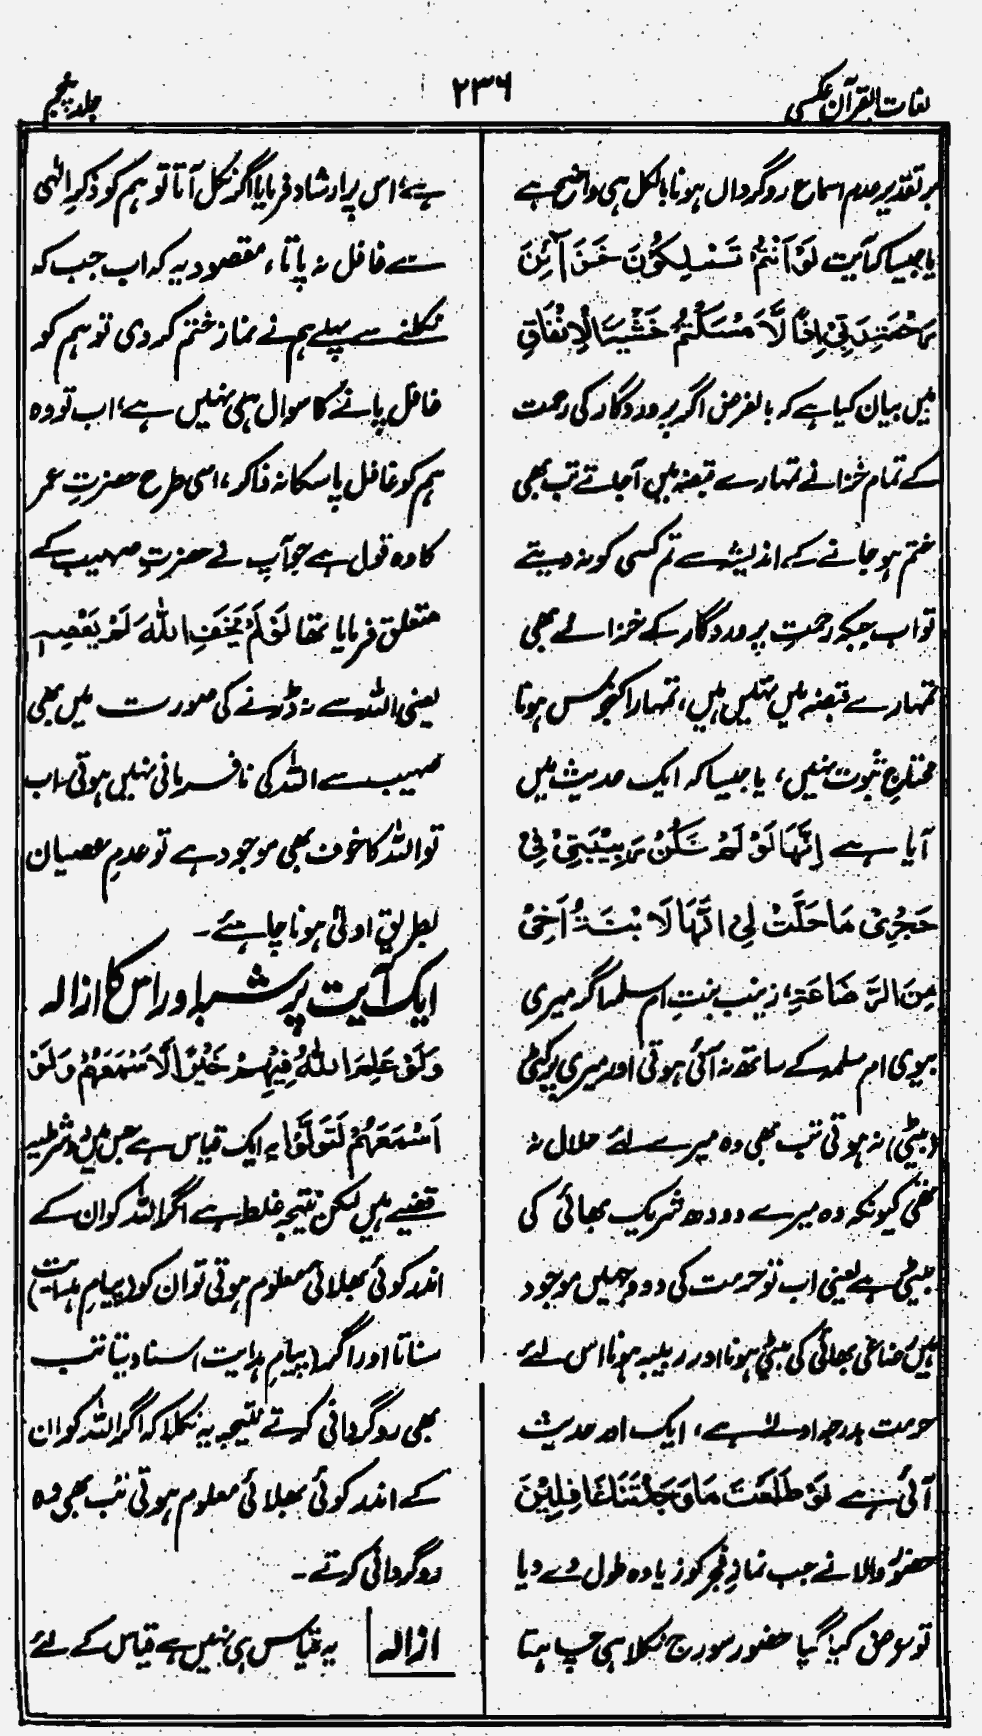 لغات القرآن عکسی
۲۳۶
جلد پنجم
برتقدیر عدم اسماع روگرداں ہونا بالکل ہی واضح ہے
یا جیسا کہ آیت لَوْ اَنْتُمْ تَمْلِکُوْنَ خَزَآئِنَ
رَحْمَۃِ رَبِّیْ اِذًا لَّاَمْسَکْتُمْ خَشْیَۃَ الْاِنْفَاقِ
میں بیان کیا ہے کہ بالفرض اگر پروردگار کی رحمت
کے تمام خزانے تمہارے قبضہ میں آجاتے تب بھی
ختم ہو جانے کے اندیشہ سے تم کسی کو نہ دیتے
تو اب جبکہ رحمتِ پروردگار کے خزانے بھی
تمہارے قبضہ میں نہیں ہیں، تمہارا کنجوس ہونا
محتاجِ ثبوت نہیں، یا جیسا کہ ایک حدیث میں
آیا ہے اِنَّھَا لَوْ لَمْ تَکُنْ رَبِیْبَتِیْ فِیْ
حَجْرِیْ مَا حَلَّتْ لِیْ اِنَّھَا لَابْنَۃُ اَخِیْ
مِنَ الرَّضَاعَۃِ، زینب بنتِ ام سلمہ اگر میری
بیوی ام سلمہ کے ساتھ نہ آئی ہوتی اور میری پرکٹی
(بیٹی) نہ ہوتی تب بھی وہ میرے لئے حلال نہ
تھی کیونکہ وہ میرے دودھ شریک بھائی کی
بیٹی ہے یعنی اب تو حرمت کی دو وجہیں موجود
ہیں رضاعی بھائی کی بیٹی ہونا اور ربیبہ ہونا اس لئے
حرمت بدرجہ اولےٰ ہے، ایک اور حدیث
آئی ہے لَوْ طَلَعَتْ مَا وَجَدَتْنَا غَافِلِیْنَ
حضورِ والا نے جب نمازِ فجر کو زیادہ طول دے دیا
تو عرض کیا گیا حضور سورج نکلا ہی چاہتا
ہے، اس پر ارشاد فرمایا اگر نکل آتا تو ہم کو ذکرِ الٰہی
سے غافل نہ پاتا، مقصود یہ کہ اب جب کہ
نکلنے سے پہلے ہم نے نماز ختم کر دی تو ہم کو
غافل پانے کا سوال ہی نہیں ہے، اب تو وہ
ہم کو غافل پا سکا نہ ذاکر، اسی طرح حضرتِ عمر
کا وہ قول ہے جو آپ نے حضرتِ صہیب کے
متعلق فرمایا تھا لَوْ لَمْ یَخَفِ اللہَ لَمْ یَعْصِہٖ
یعنی اللہ سے نہ ڈرنے کی صورت میں بھی
صہیب سے اللہ کی نافرمانی نہیں ہوتی، اب
تو اللہ کا خوف بھی موجود ہے تو عدمِ عصیان
بطریق اولیٰ ہونا چاہئے۔
ایک آیت پر شبہ اور اس کا ازالہ
وَلَوْ عَلِمَ اللہُ فِیْھِمْ خَیْرًا لَّاَسْمَعَھُمْ وَلَوْ
اَسْمَعَھُمْ لَتَوَلَّوْا یہ ایک قیاس ہے جس میں دو شرطیہ
قضیے ہیں لیکن نتیجہ غلط ہے اگر اللہ کو ان کے
اندر کوئی بھلائی معلوم ہوتی تو ان کو (پیامِ ہدایت)
سناتا اور اگر (پیامِ ہدایت) سنا دیتا تب
بھی روگردانی کرتے نتیجہ یہ نکلا کہ اگر اللہ کو ان
کے اندر کوئی بھلائی معلوم ہوتی تب بھی وہ
روگردانی کرتے۔
ازالہ یہ قیاس ہی نہیں ہے قیاس کے لئے